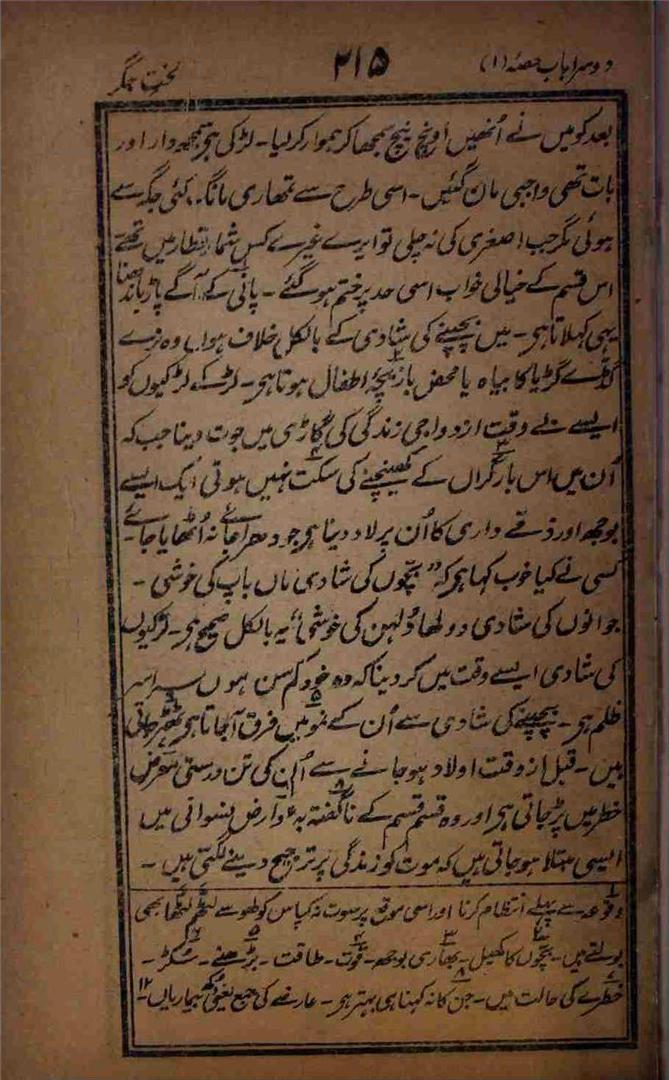 دوسرا باب حصہ (۱)
۲۱۵
لخت جگر
بعد کو میں نے اُنھیں اُونچ نیچ سمجھا کر ہموار کر لیا۔ لڑکی ہے سمجھ دار اور
بات تھی واجبی مان گئیں۔ اسی طرح سے تمھاری مانگ کئی جگہ سے
ہوئی مگر جب اصغری کی نہ چلی تو ایرے غیرے کس شمار قطار میں تھے
اس قسم کے خیالی خواب اسی حد پر ختم ہو گئے۔ پانی کے آگے پاڑ باندھنا
یہی کہلاتا ہے۔ میں بچپنے کی شادی کے بالکل خلاف ہوں وہ نرے
گڈے گڑیا کا بیاہ یا محض بازیچۂ اطفال ہوتا ہے۔ لڑکے لڑکیوں کو
ایسے بے وقت ازدواجی زندگی کی گاڑی میں جوت دینا جب کہ
اُن میں اس بار گراں کے کھینچنے کی سکت نہیں ہوتی ایک ایسے
بوجھ اور ذمے داری کا اُن پر لاد دینا ہے جو نہ اُٹھایا جائے۔
کسی نے کیا خوب کہا ہے کہ "بچّوں کی شادی ماں باپ کی خوشی۔
جوانوں کی شادی دولھا دُلہن کی خوشی" یہ بالکل صحیح ہے۔ لڑکیوں
کی شادی ایسے وقت میں کر دینا کہ وہ خود کم سن ہوں سراسر
ظلم ہے۔ بچپنے کی شادی سے اُن کے نمو میں فرق آ جاتا ہے ٹھٹھر جاتی
ہیں۔ قبل از وقت اولاد ہو جانے سے اُن کی تن درستی معرض
خطر میں پڑ جاتی ہے اور وہ قسم قسم کے ناگفتہ بہ عوارض نسوانی میں
ایسی مبتلا ہو جاتی ہیں کہ موت کو زندگی پر ترجیح دینے لگتی ہیں۔
۱ وقوعہ سے پہلے انتظام کرنا اور اسی موقع پر سوت نہ کپاس کولھو سے لٹھم لٹھا بھی
بولتے ہیں۔ ۲ بچّوں کا کھیل۔ ۳ بھاری بوجھ۔ ۴ قوت۔ طاقت۔ ۵ بڑھنے۔ ۶ سُکڑ۔
۷ خطرے کی حالت میں۔ ۸ جن کا نہ کہنا ہی بہتر ہے۔ عارضے کی جمع یعنی بیماریاں۔ ۱۲